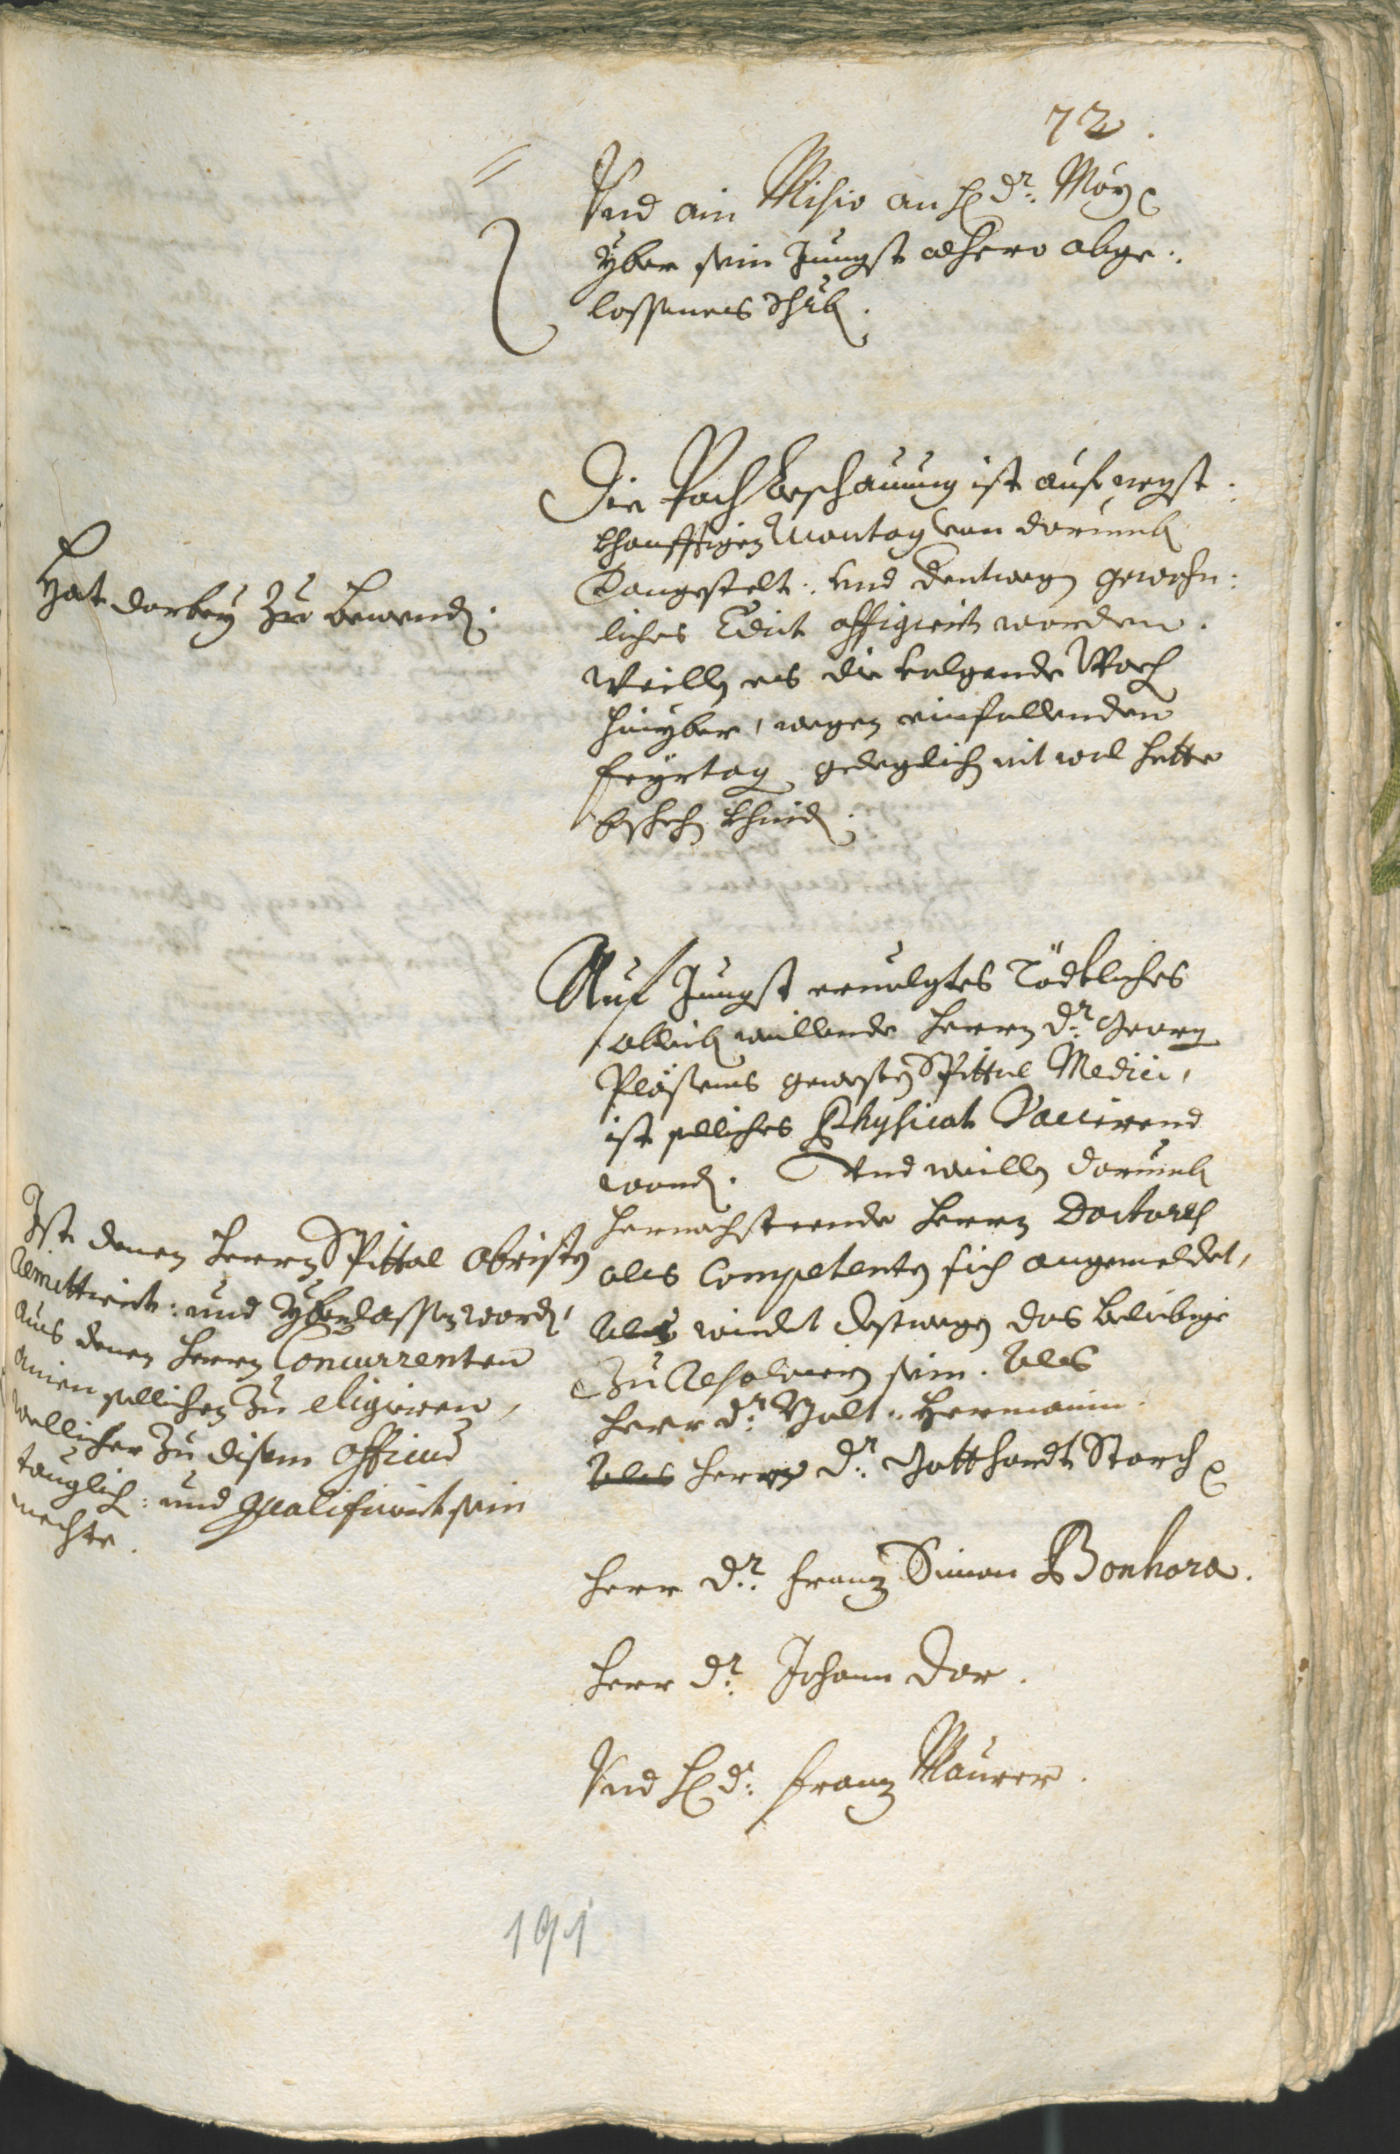 72.
Vnd ain Missio an H: Dr. May
yber sein Jungst alhero abge-
lassenes schrb.
Die Pachbeschauung ist auf negst-
khonfftigen Montag von darumb
angestelt: und dentwegen gewohn-
liches Edict affigiert worden.
Weillen es die volgende Woch
hinyber, wegen einfallenden
Feyrtag, geleglich nit wol hette
bschehen khinden.
Hat darbey zu bewenden.
Auf Jungst ervolgtes Tödtliches
ableiben weillende Herrn Dr. Georg
gewesten Spittal Medici,
ist selliches Physicat Vacierend
worden. Und weillen darumb
hernachsteende Herrn Doctores
als Competenten sich angemeldet,
Als wirdet destwegen das beliebige
zu Resolvieren sein. Als
Herr Dr. Valt. Hermanin.
Als Herr Dr. Gotthardt Storch
Herr Dr. Franz Simon Bonhora.
Herr Dr. Johann Dor.
Vnd H: Dr. Franz Maurer.
Ist denen Herrn Spittal Obristen
Remittiert: und yberlassen worden,
aus denen Herrn Concurrenten
ainen sellichen zu eligieren,
wellicher zu disem Officio
tauglich: und qualificiert sein
mechte.
191